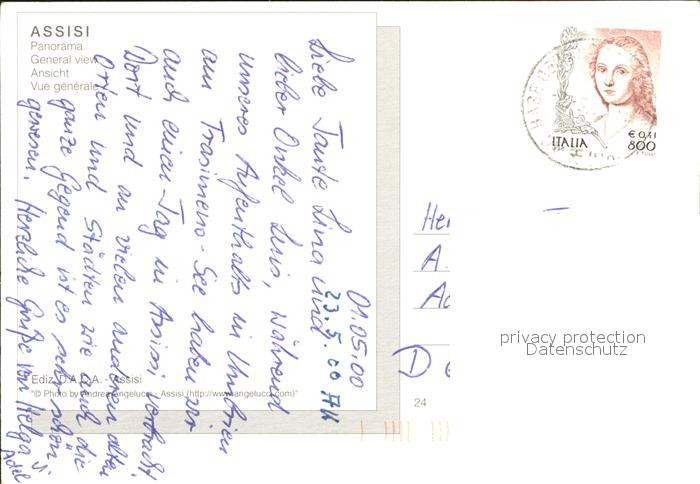 ASSISI
Panorama
General view
Ansicht
Vue générale
01.05.00
23.5.00
Liebe Tante Lina und
lieber Onkel Luis, während
unseres Aufenthalts in Umbrien
am Trasimeno-See haben wir
auch einen Tag in Assisi verbracht.
Dort und an vielen anderen alten
Orten und Städten wie auch die
ganze Gegend ist es sehr schön
gewesen. Herzliche Grüße von Helga
Ediz. D.A.C.A. - Assisi
"© Photo by Andrea Angelucci - Assisi (http://www.angelucci.com)"
ITALIA
€ 0,41
800
Her
A.
D
24
privacy protection
Datenschutz